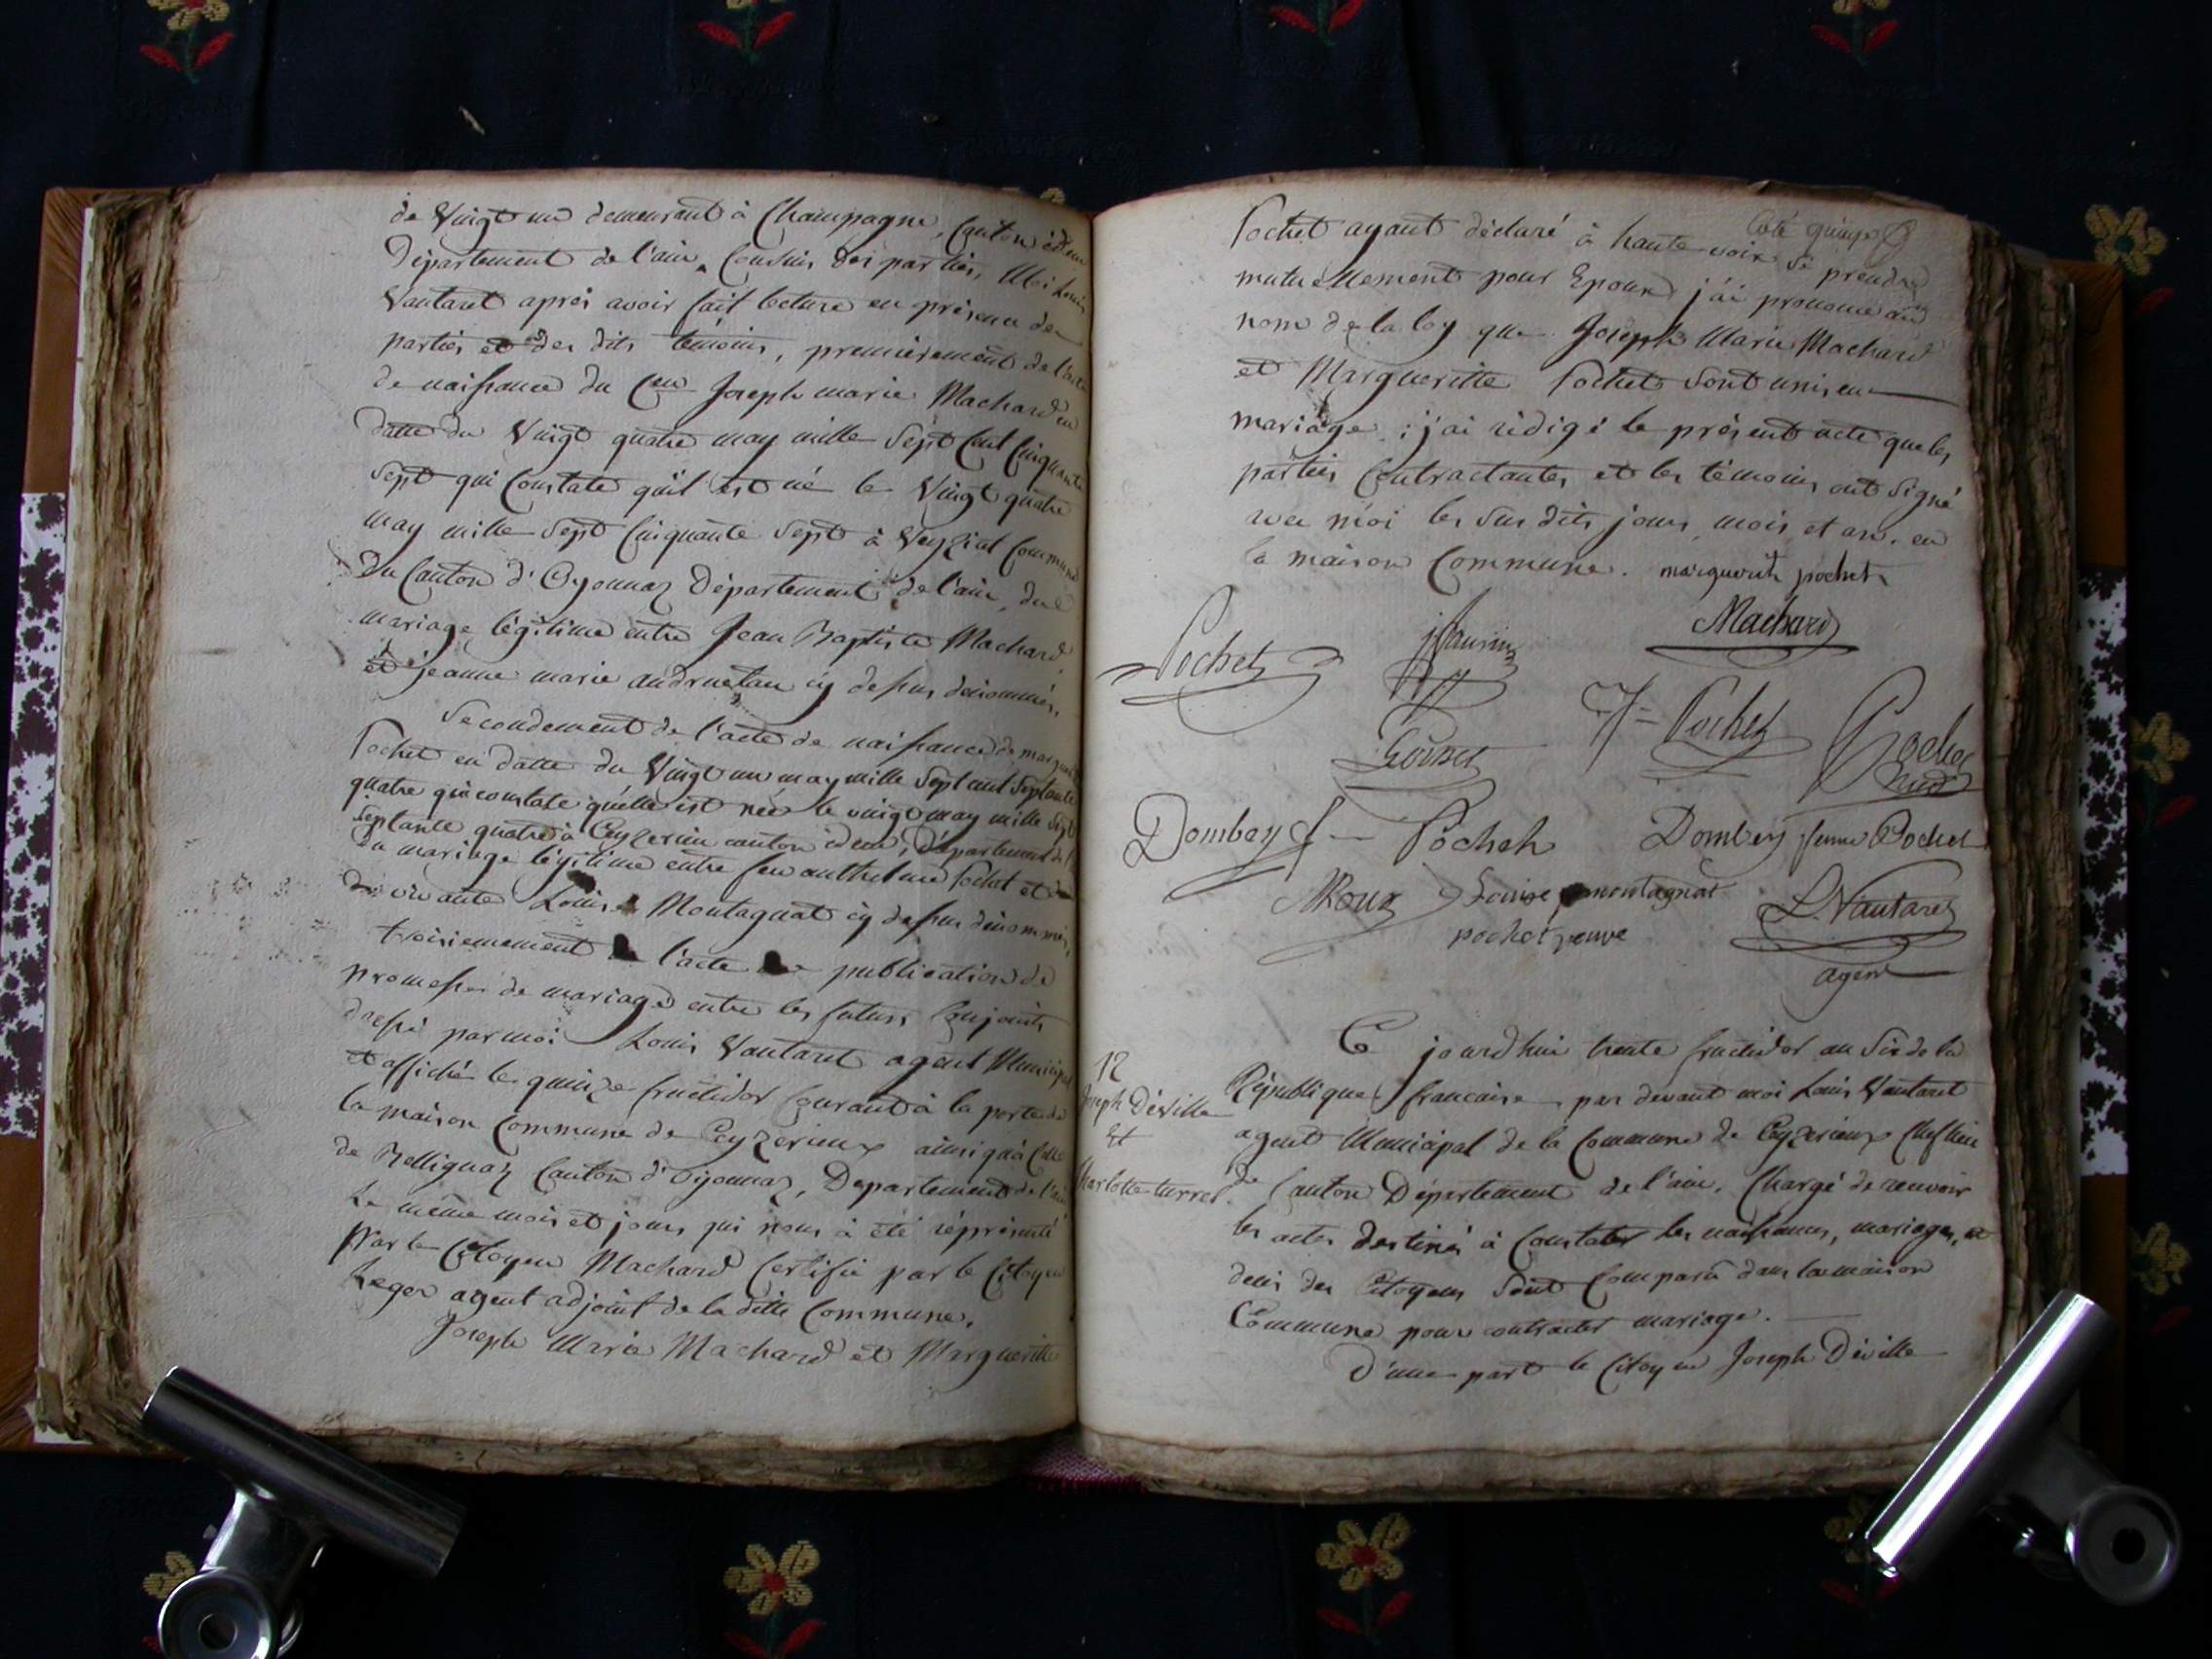 de Vingt un demeurant à Champagne, Canton idem
Département de l'ain, Cousin des parties, Moi Louis
Vautaret aprés avoir fait lecture en présence des
parties et des dits témoins, premierement de l'acte
de naissance du Cen Joseph marie Machard en
datte du Vingt quatre may mille Sept Cent Cinquante
Sept qui Constate qu'il est né le Vingt quatre
may mille Sept Cinquante Sept à Veyziat Commune
du Canton d'Oyonnaz Département de l'ain, du
mariage légitime entre Jean Baptiste Machard
et jeanne marie andruetan cy dessus dénommés.
Secondement de l'acte de naissance de
Pochet en datte du Vingt un may mille Sept cent Septante
quatre qui constate qu'elle est née le vingt may mille Sept
Septante quatre à Ceyzerieu canton idem, Département de
du mariage légitime entre feu anthelme Pochet et
vivante Louise Montagnat cy dessus dénommés,
troisiemement l'acte publication de
promesses de mariage entre les futurs Conjoints
dressé par moi Louis Vautaret agent Municipal
et affiché le quinze fructidor Courant à la porte de
la maison Commune de Ceyzerieux ainsi qu'à Celle
de Bellignaz Canton d'Oyonnaz, Departement de l'ain
le même mois et jour, qui nous à été réprésenté
Par le Citoyen Machard Certifié par le Citoyen
Leger agent adjoint de la ditte Commune.
Joseph Marie Machard et Margueritte
Coté quinze
Pochet ayant déclaré à haute voix Se prendre
mutuellement pour Epoux j'ai prononcé au
nom de la loy que Joseph Marie Machard
et Margueritte Pochet Sont unis en
mariage ; j'ai rédigé le présent acte que les
parties Contractantes et les témoins ont Signé
avec moi les Sus dits jours, mois et an. en
la maison Commune. marguerite pochet
Pochet
Machard
Goinet
Pochet
Pochet
Dombey Pochet
Dombey femme Pochet
Roux
Louise montagnat
pochet veuve
L. Vautaret
agent
12
Joseph Déville
Et
Charlotte turrel.
Ce jourd'hui trente fructidor an Six de la
République francaise par devant moi Louis Vautaret
agent Municipal de la Commune de Ceyzerieux Chef lieu
de Canton Département de l'ain, Chargé de recevoir
les actes destinés à Constater les naissances, mariages, et
décés des Citoyens Sont Comparu dans la maison
Commune pour contracter mariage.
D'une part le Citoyen Joseph Déville